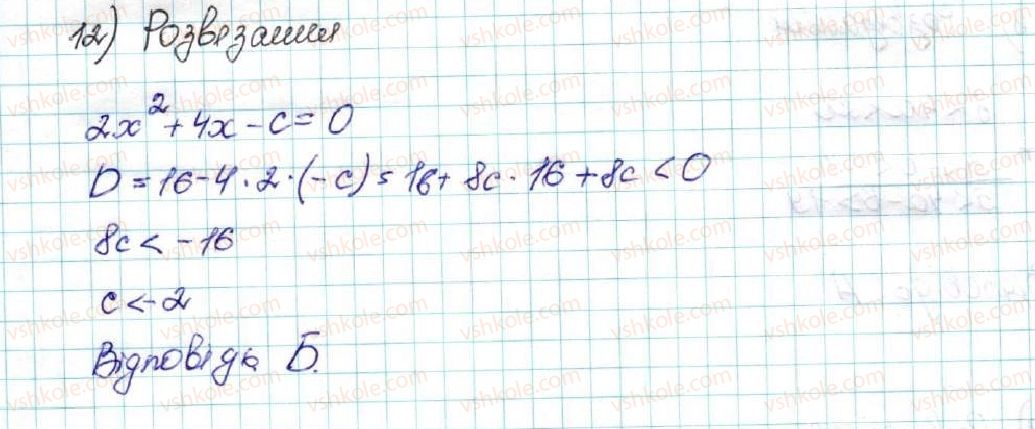 12) Розв'язання
2x² + 4x - c = 0
D = 16 - 4 · 2 · (-c) = 16 + 8c · 16 + 8c < 0
8c < -16
c < -2
Відповідь Б.